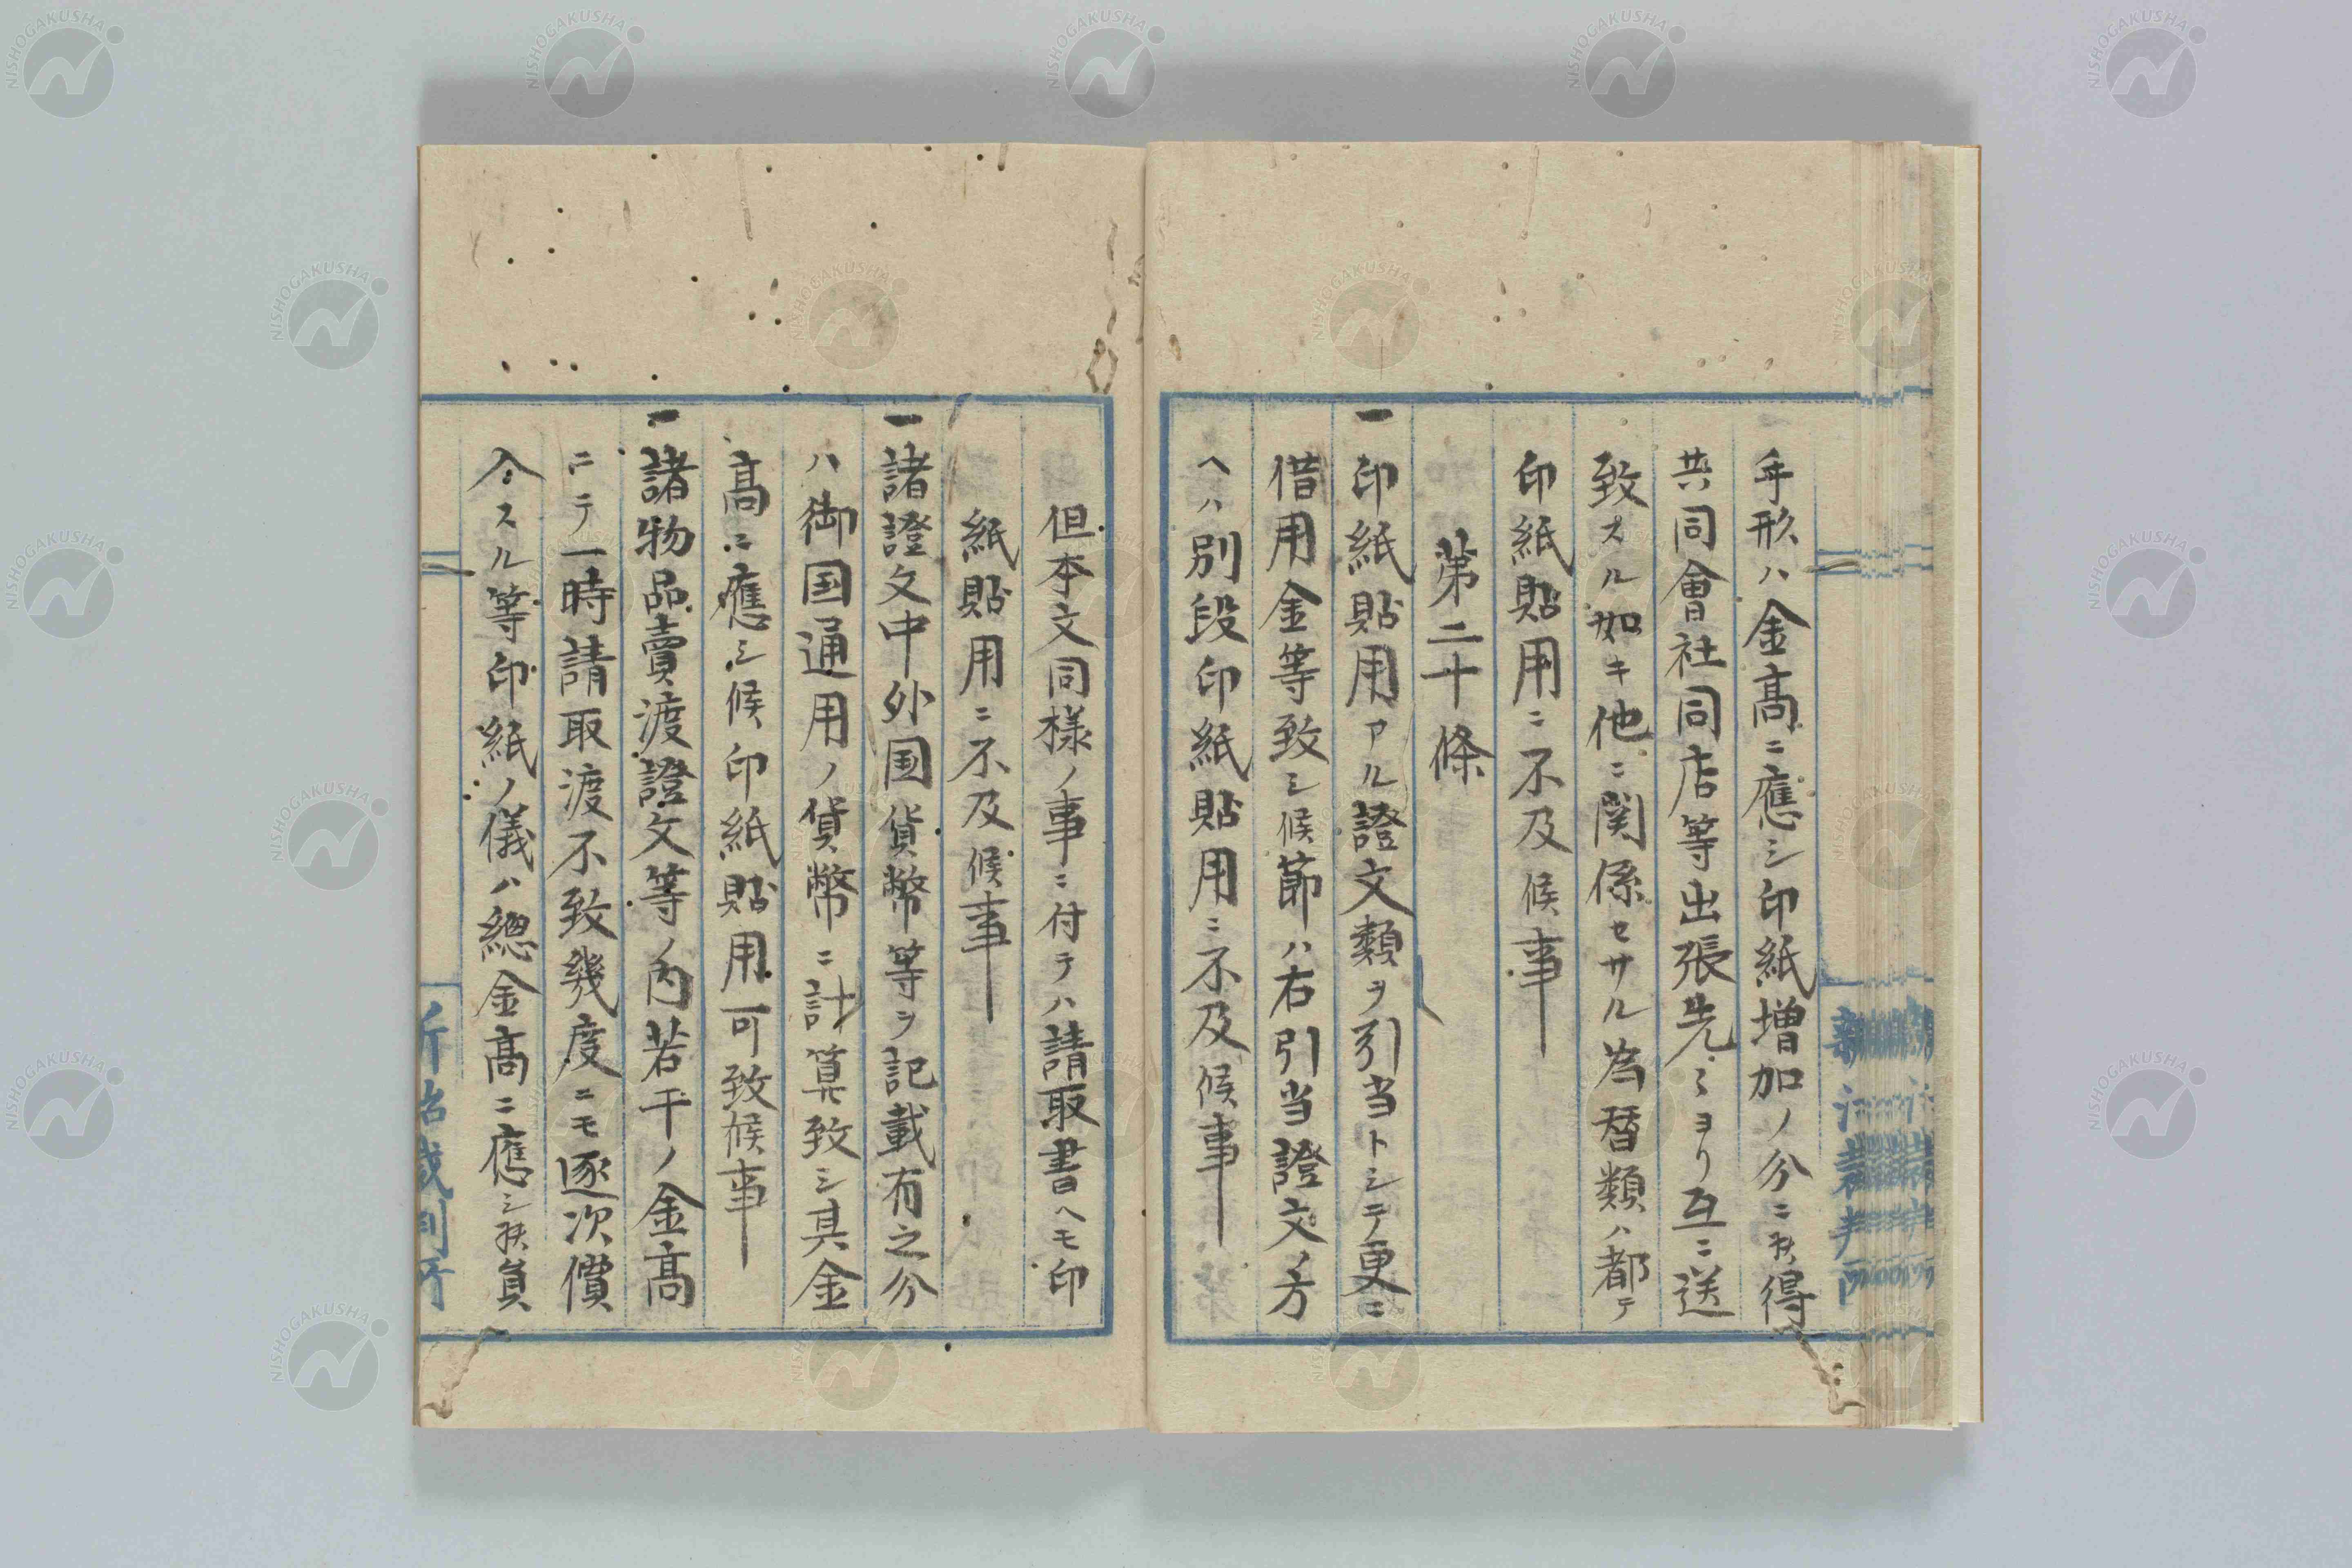 手形ハ金高ニ應シ印紙増加ノ分ニ候得
共同會社同店等出張先ミヨリ互ニ送
致スル如キ他ニ関係セサル為替類ハ都テ
印紙貼用ニ不及候事
第二十條
一印紙貼用アル證文類ヲ引当トシテ更ニ
借用金等致シ候節ハ右引当證文ノ方
ヘハ別段印紙貼用ニ不及候事
但本文同様ノ事ニ付テハ請取書ヘモ印
紙貼用ニ不及候事
一諸證文中外国貨幣等ヲ記載有之分
ハ御国通用ノ貨幣ニ計算致シ其金
高ニ應シ候印紙貼用可致候事
一諸物品賣渡證文等ノ内若干ノ金高
ニテ一時請取渡不致幾度ニモ逐次價
今スル等印紙ノ儀ハ總金高ニ應シ員
新治裁判所
新治裁判所
NISHOGAKUSHA